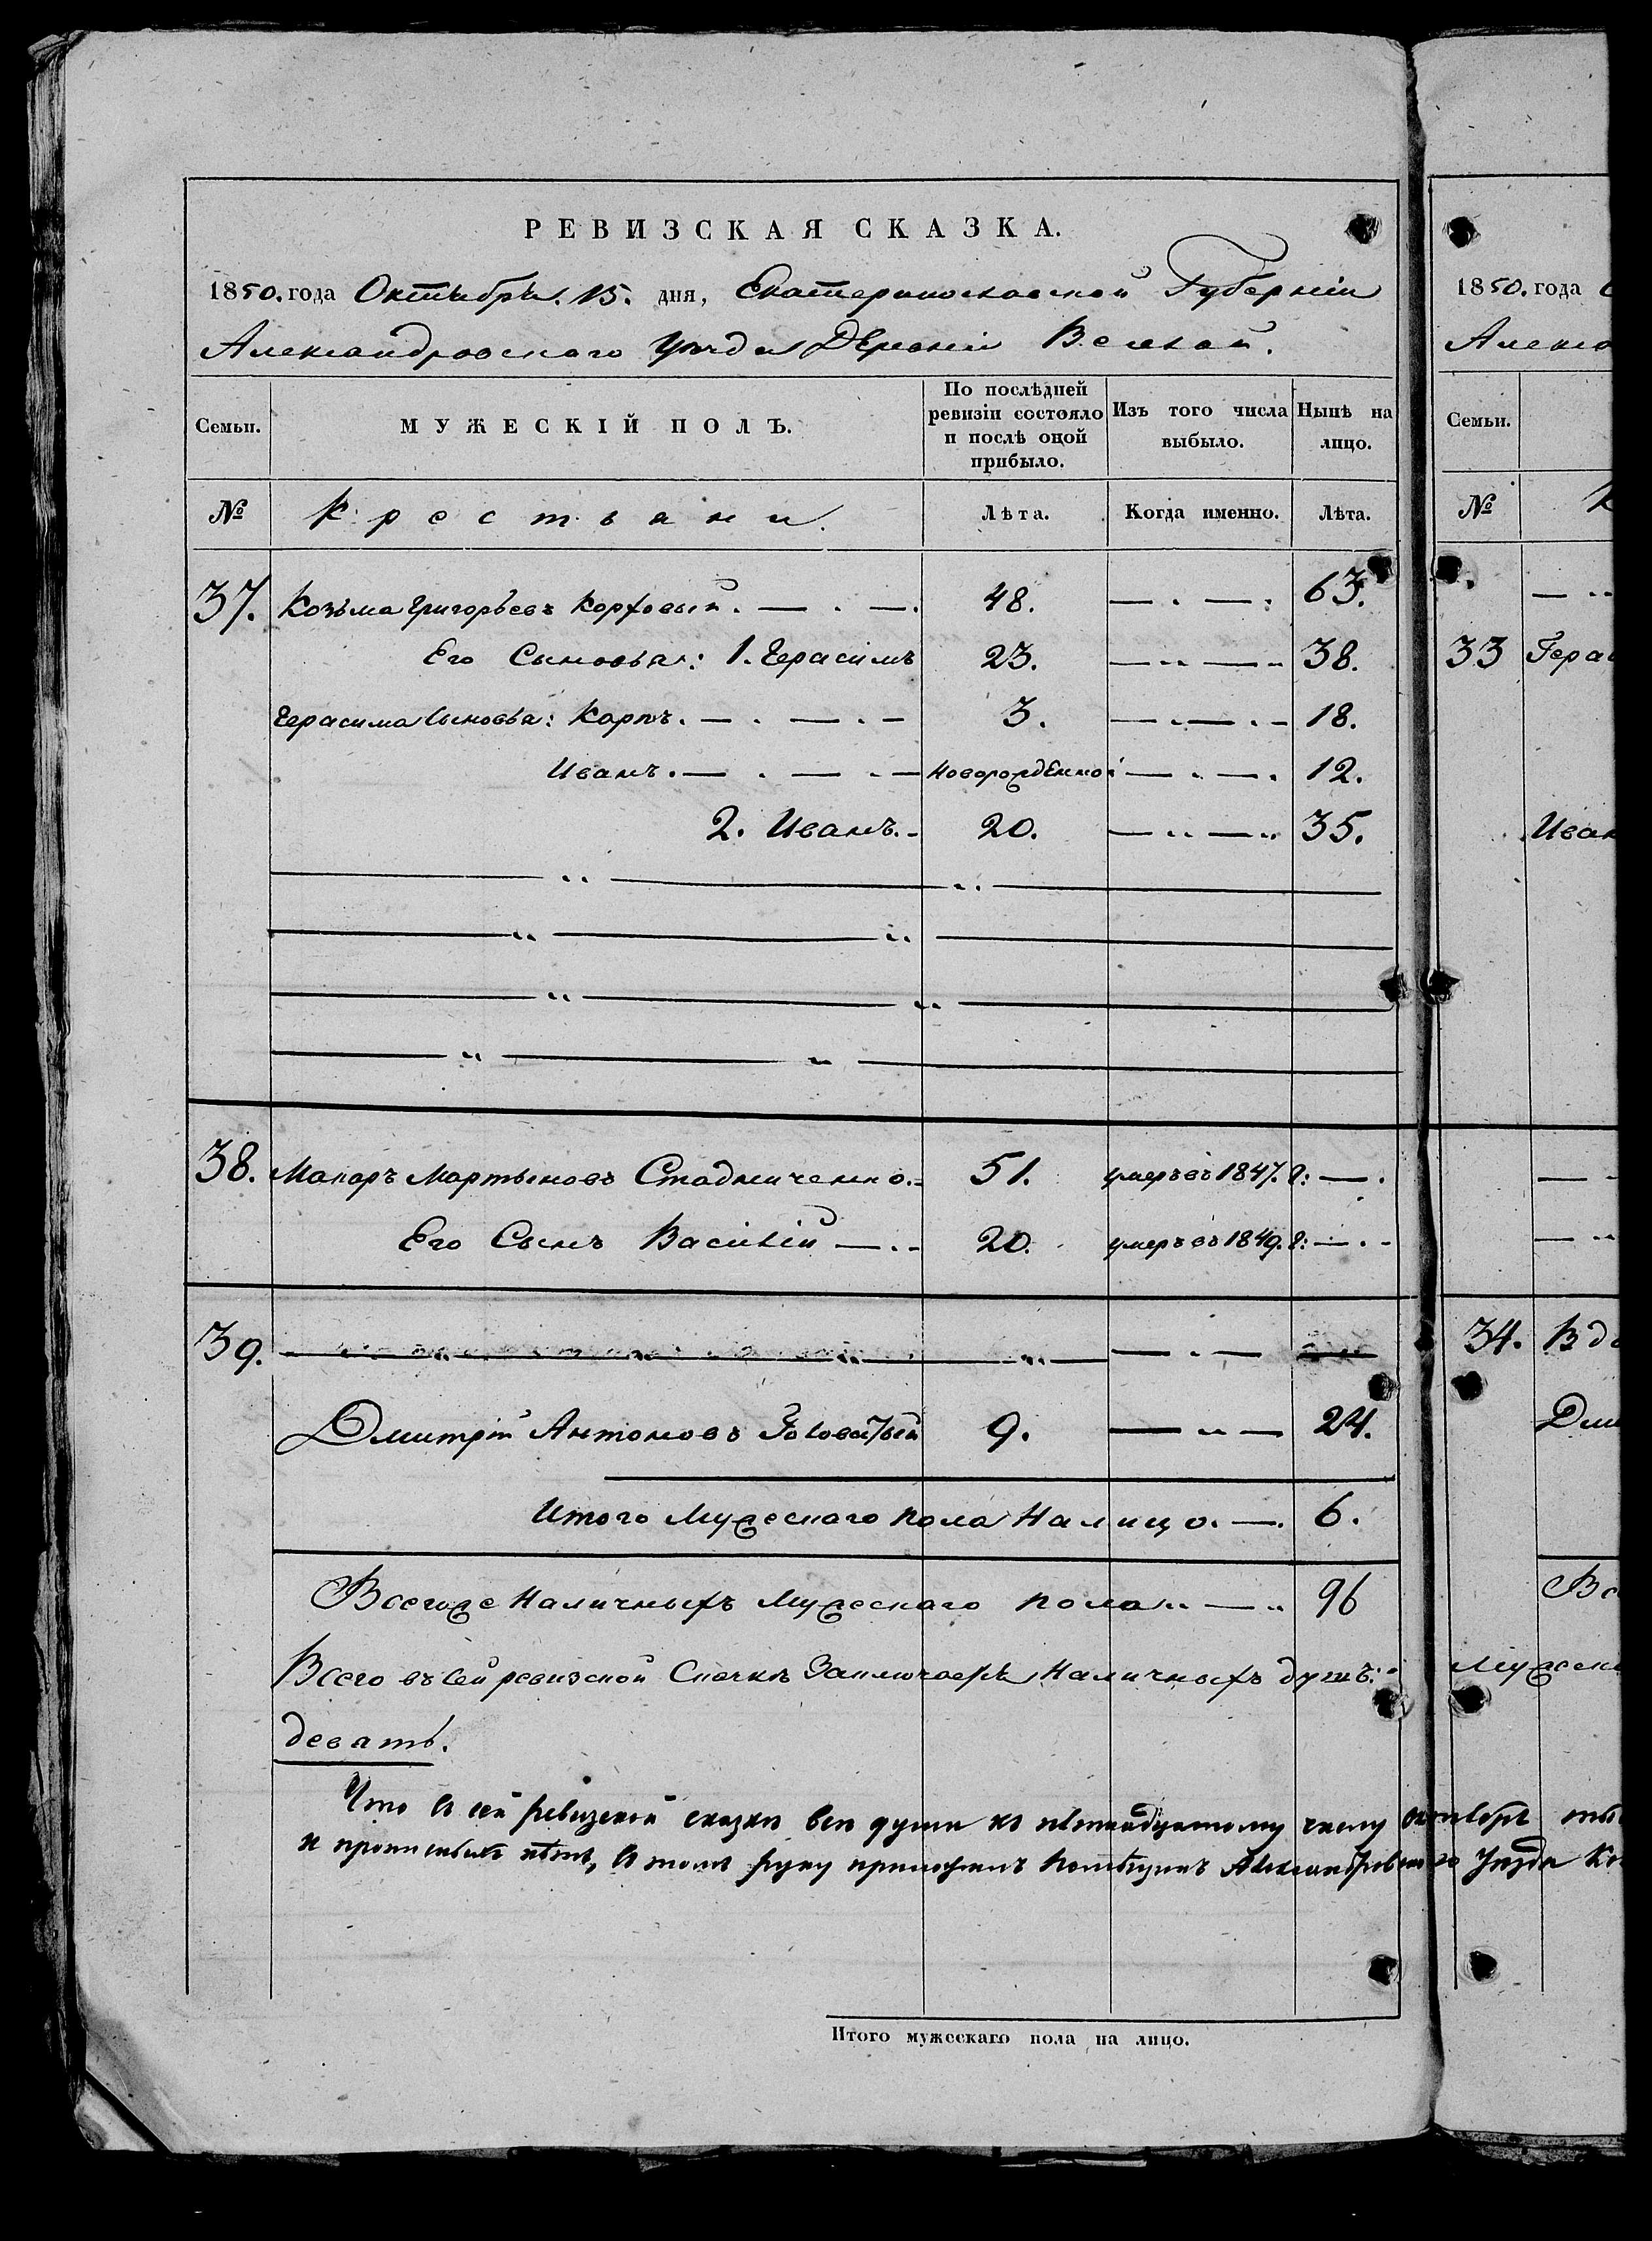 РЕВИЗСКАЯ СКАЗКА.
1850. года Октября. 15. дня, Екатеринославской Губерніи
Александровскаго Уѣзда Деревни Велкой.
Семьи. МУЖЕСКІЙ ПОЛЪ. По послѣдней ревизіи состояло и послѣ оной прибыло. Изъ того числа выбыло. Нынѣ на лицо.
№ Крестьяни. Лѣта. Когда именно. Лѣта.
37. Козьма Григорьевъ Корховый. 48. 63.
Его Сыновья: 1. Герасимъ 23. 38.
Герасима Сыновья: Карпъ. 3. 18.
Иванъ. Новорожденной 12.
2. Иванъ. 20. 35.
38. Макаръ Мартыновъ Стадниченко. 51. умеръ въ 1847. г:
Его Сынъ Василій 20. умеръ въ 1849. г:
39.
Дмитрій Антоновъ 9. 24.
Итого Мужескаго пола На лицо. 6.
Всегоже Наличныхъ Мужескаго пола 96
Всего въ сей ревизской Сказкѣ Заключаетъ Наличныхъ душъ:
девать.
Что въ сей ревизской сказкѣ всѣ души къ пятнадцатому числу октября
и прописныхъ нѣтъ, въ томъ руку приложилъ Помѣщикъ Александровскаго Уѣзда
Итого мужескаго пола на лицо.
1850. года
Семьи.
№
33
Иван
34. Вдо